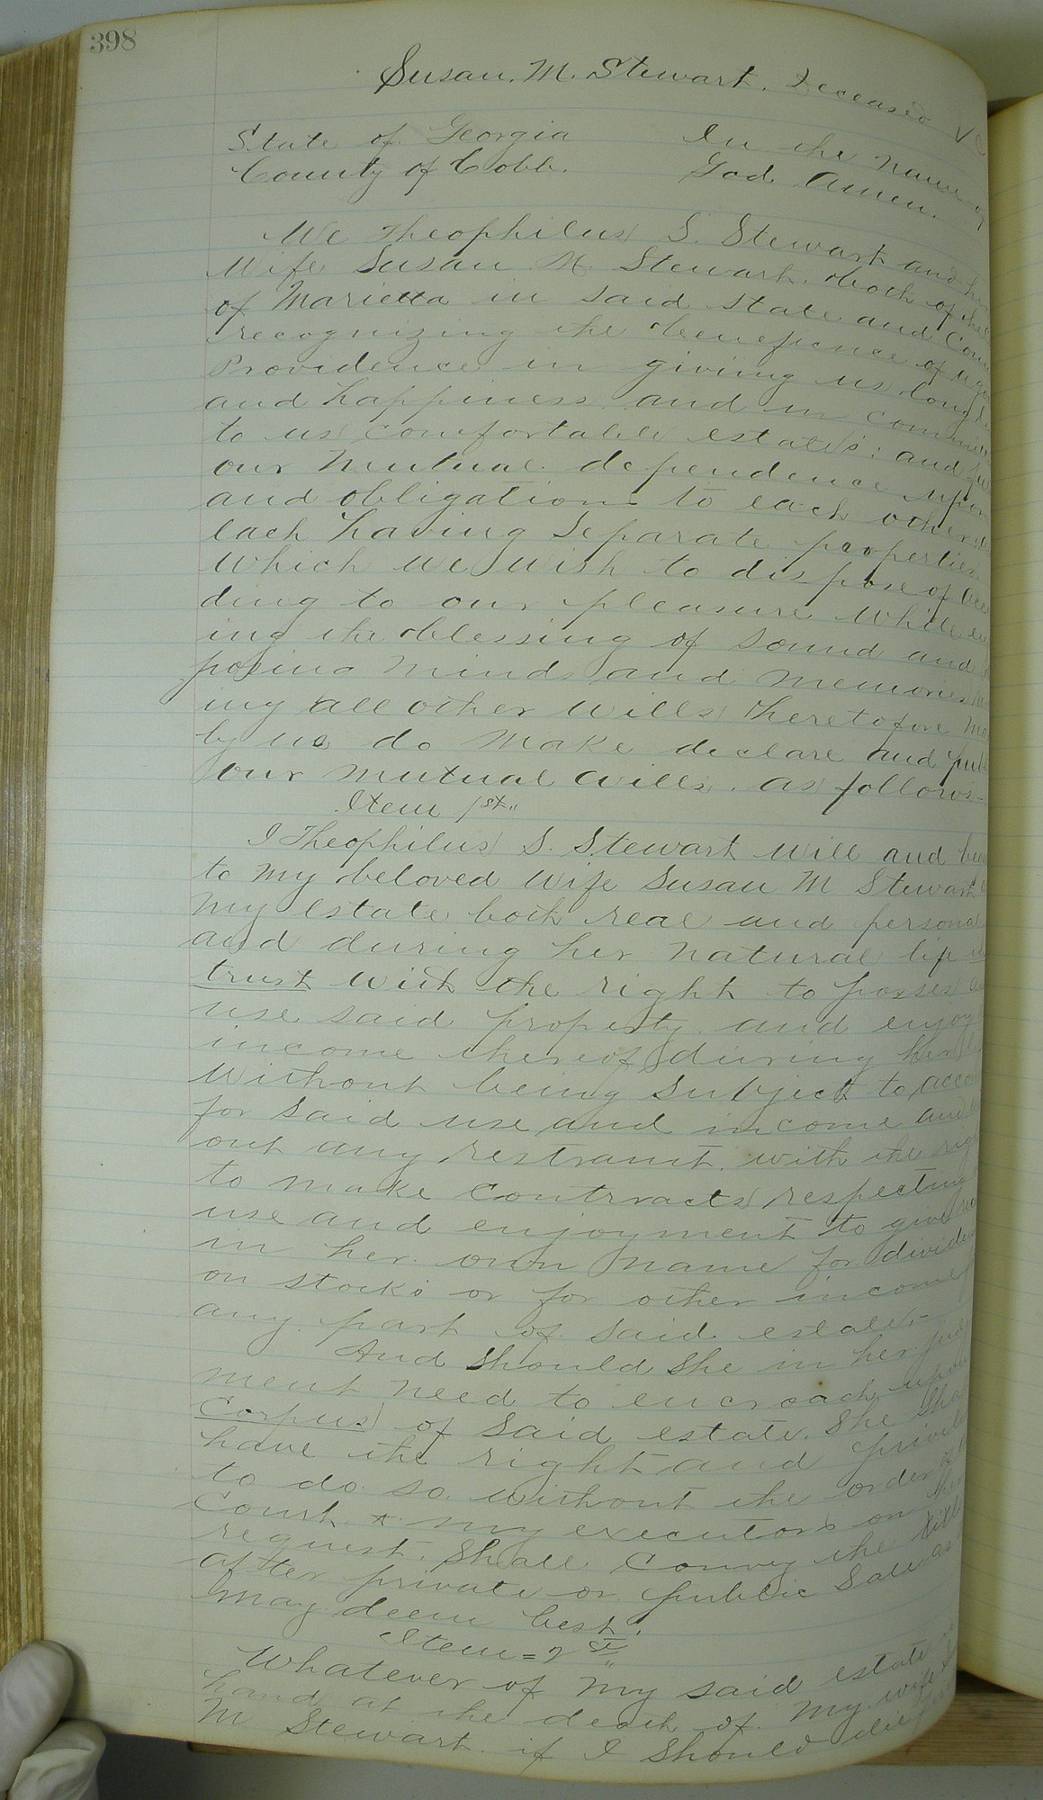 398
Susan. M. Stewart. Deceased
State of Georgia
County of Cobb.
In the name of
God Amen.
We Theophilus S. Stewart and his
Wife Susan M. Stewart. both of the
of Marietta in said State and Coun
recognizing the beneficence of
Providence in giving us long
and happiness and in
to us comfortable estates: and
our mutual dependence upon
and obligations to each other
each having separate properties
Which we wish to dispose of
ding to our pleasure While
ing the blessing of sound and
posing minds and memories
ing all other Wills heretofore
by us do make declare and
our mutual Wills. as follows-
Item 1st"
I Theophilus S. Stewart Will and
to my beloved Wife Susan M Stewart
my estate both real and personal
and during her natural life
trust With the right to posses
use said property. and enjoy
income thereof during her
Without being subject to
for said use and income and
out any restraint. with the
to make contracts respecting
use and enjoyment to give
in her own name for
on stocks or for other income
any part of said estate-
And should she in her
ment need to encroach upon
Corpus of said estate. She
have the right and
to do so without the order
Court & my executors on
request. Shall Convey the
after private or public Sale as
may deem best.
Item=2
Whatever of my said estate
hand at the death of my wife
M Stewart. if I should die